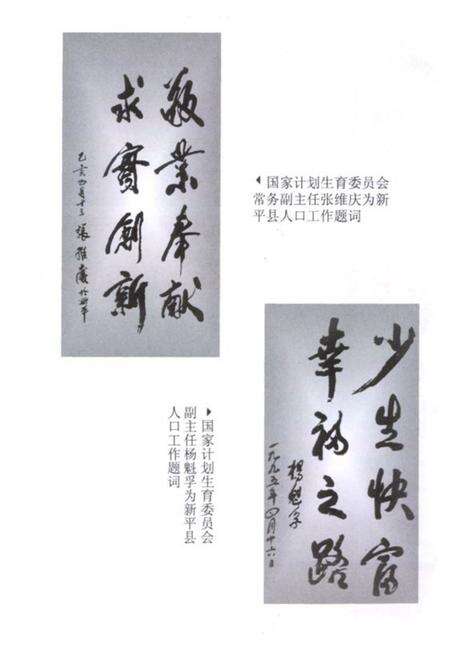 敬業奉献
求實創新
乙亥四月十三 張維慶 於新平
◀国家计划生育委员会
常务副主任张维庆为新
平县人口工作题词
少生快富
幸福之路
一九九五年四月十六日
楊魁孚
▶国家计划生育委员会
副主任杨魁孚为新平县
人口工作题词